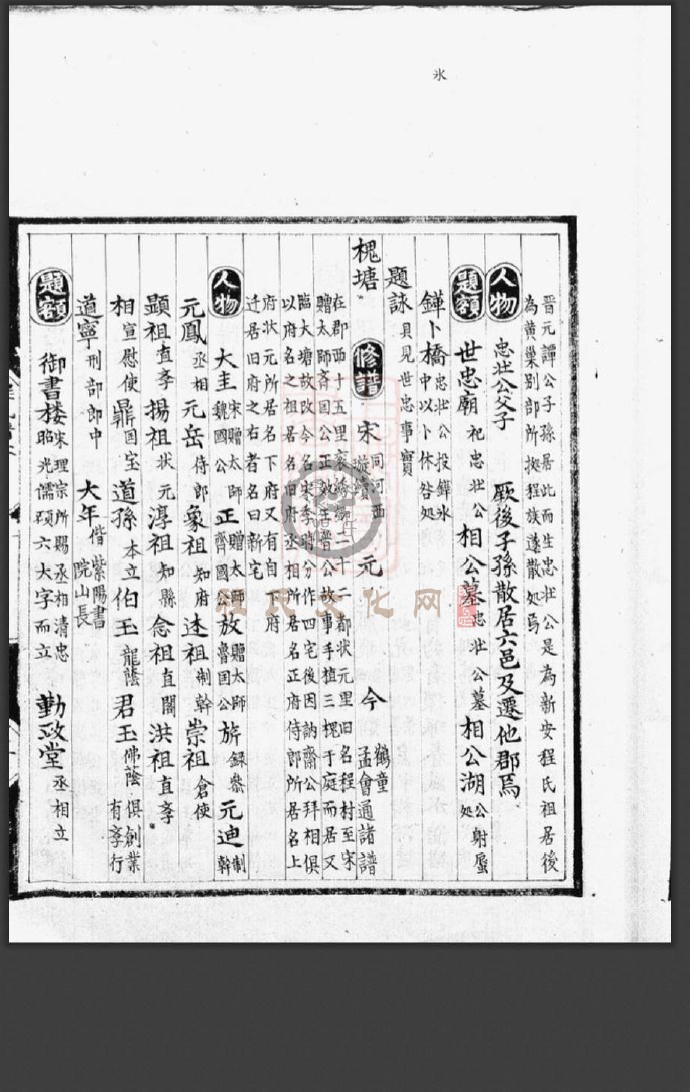 氷
晋元譚公子孫居此而生忠壯公是為新安程氏祖居後
為黄巢别部所㨿程族遂散処焉
人物 忠壯公父子 厥後子孫散居六邑及遷他郡焉
題額 世忠廟 祀忠壯公 相公墓 忠壯公墓 相公湖 公射蜃処
鏵卜橋 忠壯公投鏵氷中以卜休咎処
題詠 具見世忠事實
槐塘 修譜 宋 同河西 元 今 鶴童孟會通諸譜
在郡西十五里 二十二都状元里旧名程村至宋
贈太師齊国公正 晉公故事手植三槐于庭而居又
臨大塘故改今名宋季時分作四宅後因訥齋公拜相俱
以府名之祖居名 府丞相所居名正府侍郎所居名上
府状元所居名下府又有自下府
迁居旧府之右者名曰新宅
人物 大圭 宋贈太師魏國公 正 贈太師齊國公 放 贈太師魯国公 旂 録叅 元迪 制幹
元鳳 丞相 元岳 侍郎 象祖 知府 述祖 制幹 崇祖 倉使
顕祖 直亭 揚祖 状元 淳祖 知縣 念祖 直閣 洪祖 直亭
相 宣慰使 鼎 国宝 道孫 本立 伯玉 龍蔭 君玉 佛蔭俱創業有亭行
道寧 刑部郎中 大年 偕紫陽書院山長
題額 御書楼 宋理宗所賜丞相清忠昭光儒碩六大字而立 勤政堂 丞相立
程民文化网